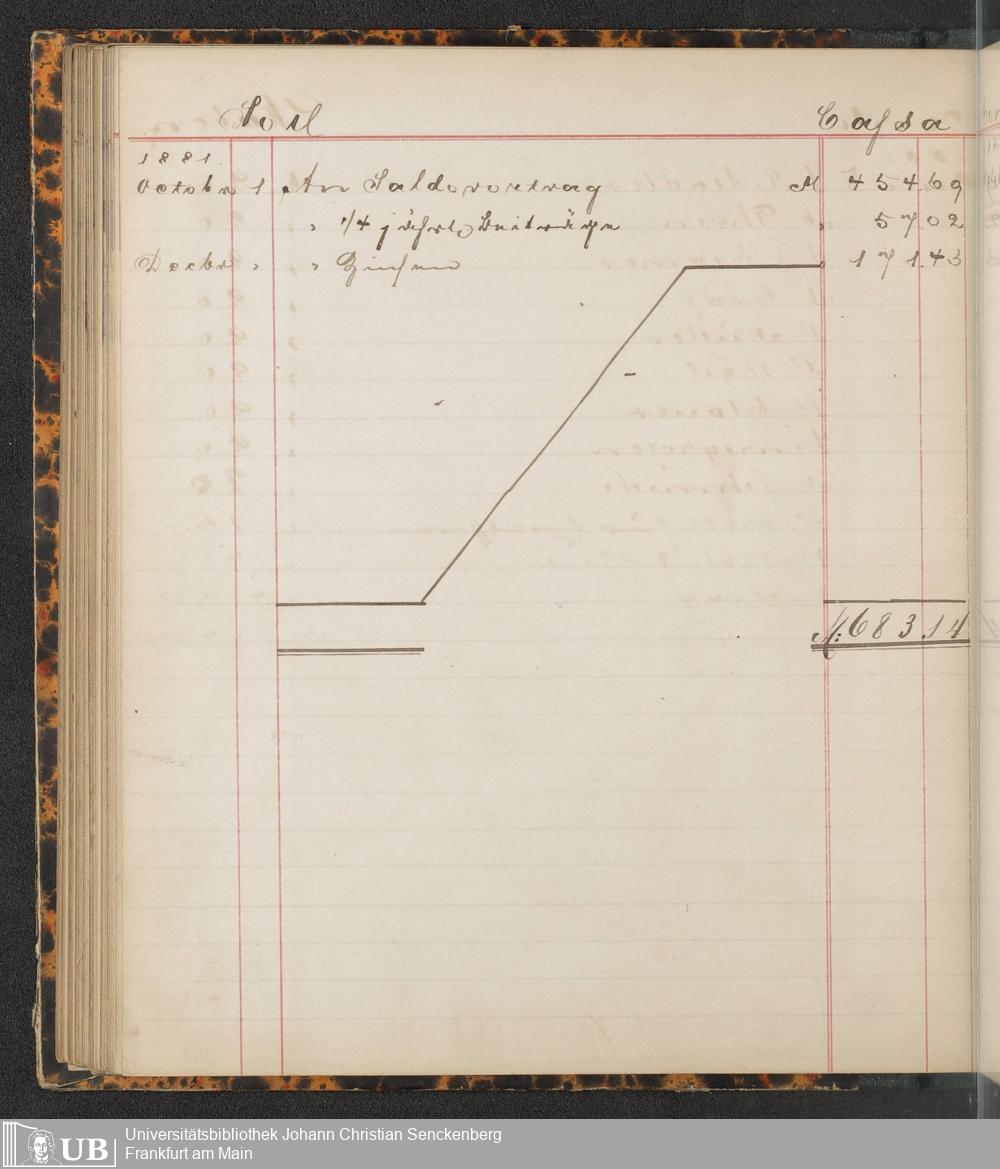 Soll Cassa
1881.
Octobr 1 An Saldovortrag M 454.69
" " 1/4 jährl. Beiträge " 57.02
Decbr " " Zinsen " 171.43
M: 683.14
UB Universitätsbibliothek Johann Christian Senckenberg
Frankfurt am Main